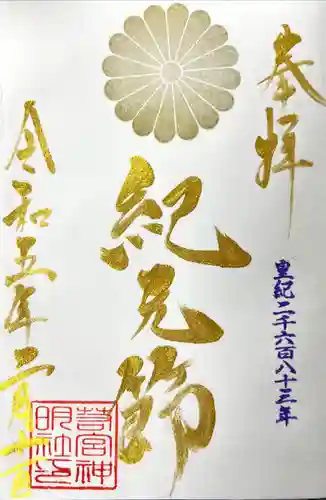 奉拝
皇紀二千六百八十三年
紀元節
令和五年二月十一日
苅宮神
明社之印